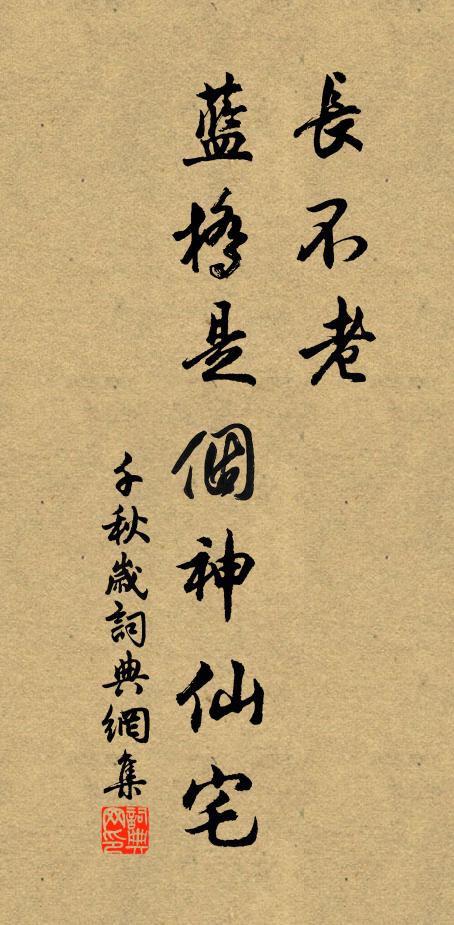 長不老
藍橋是個神仙宅
千秋歲詞典網集
詞典網印